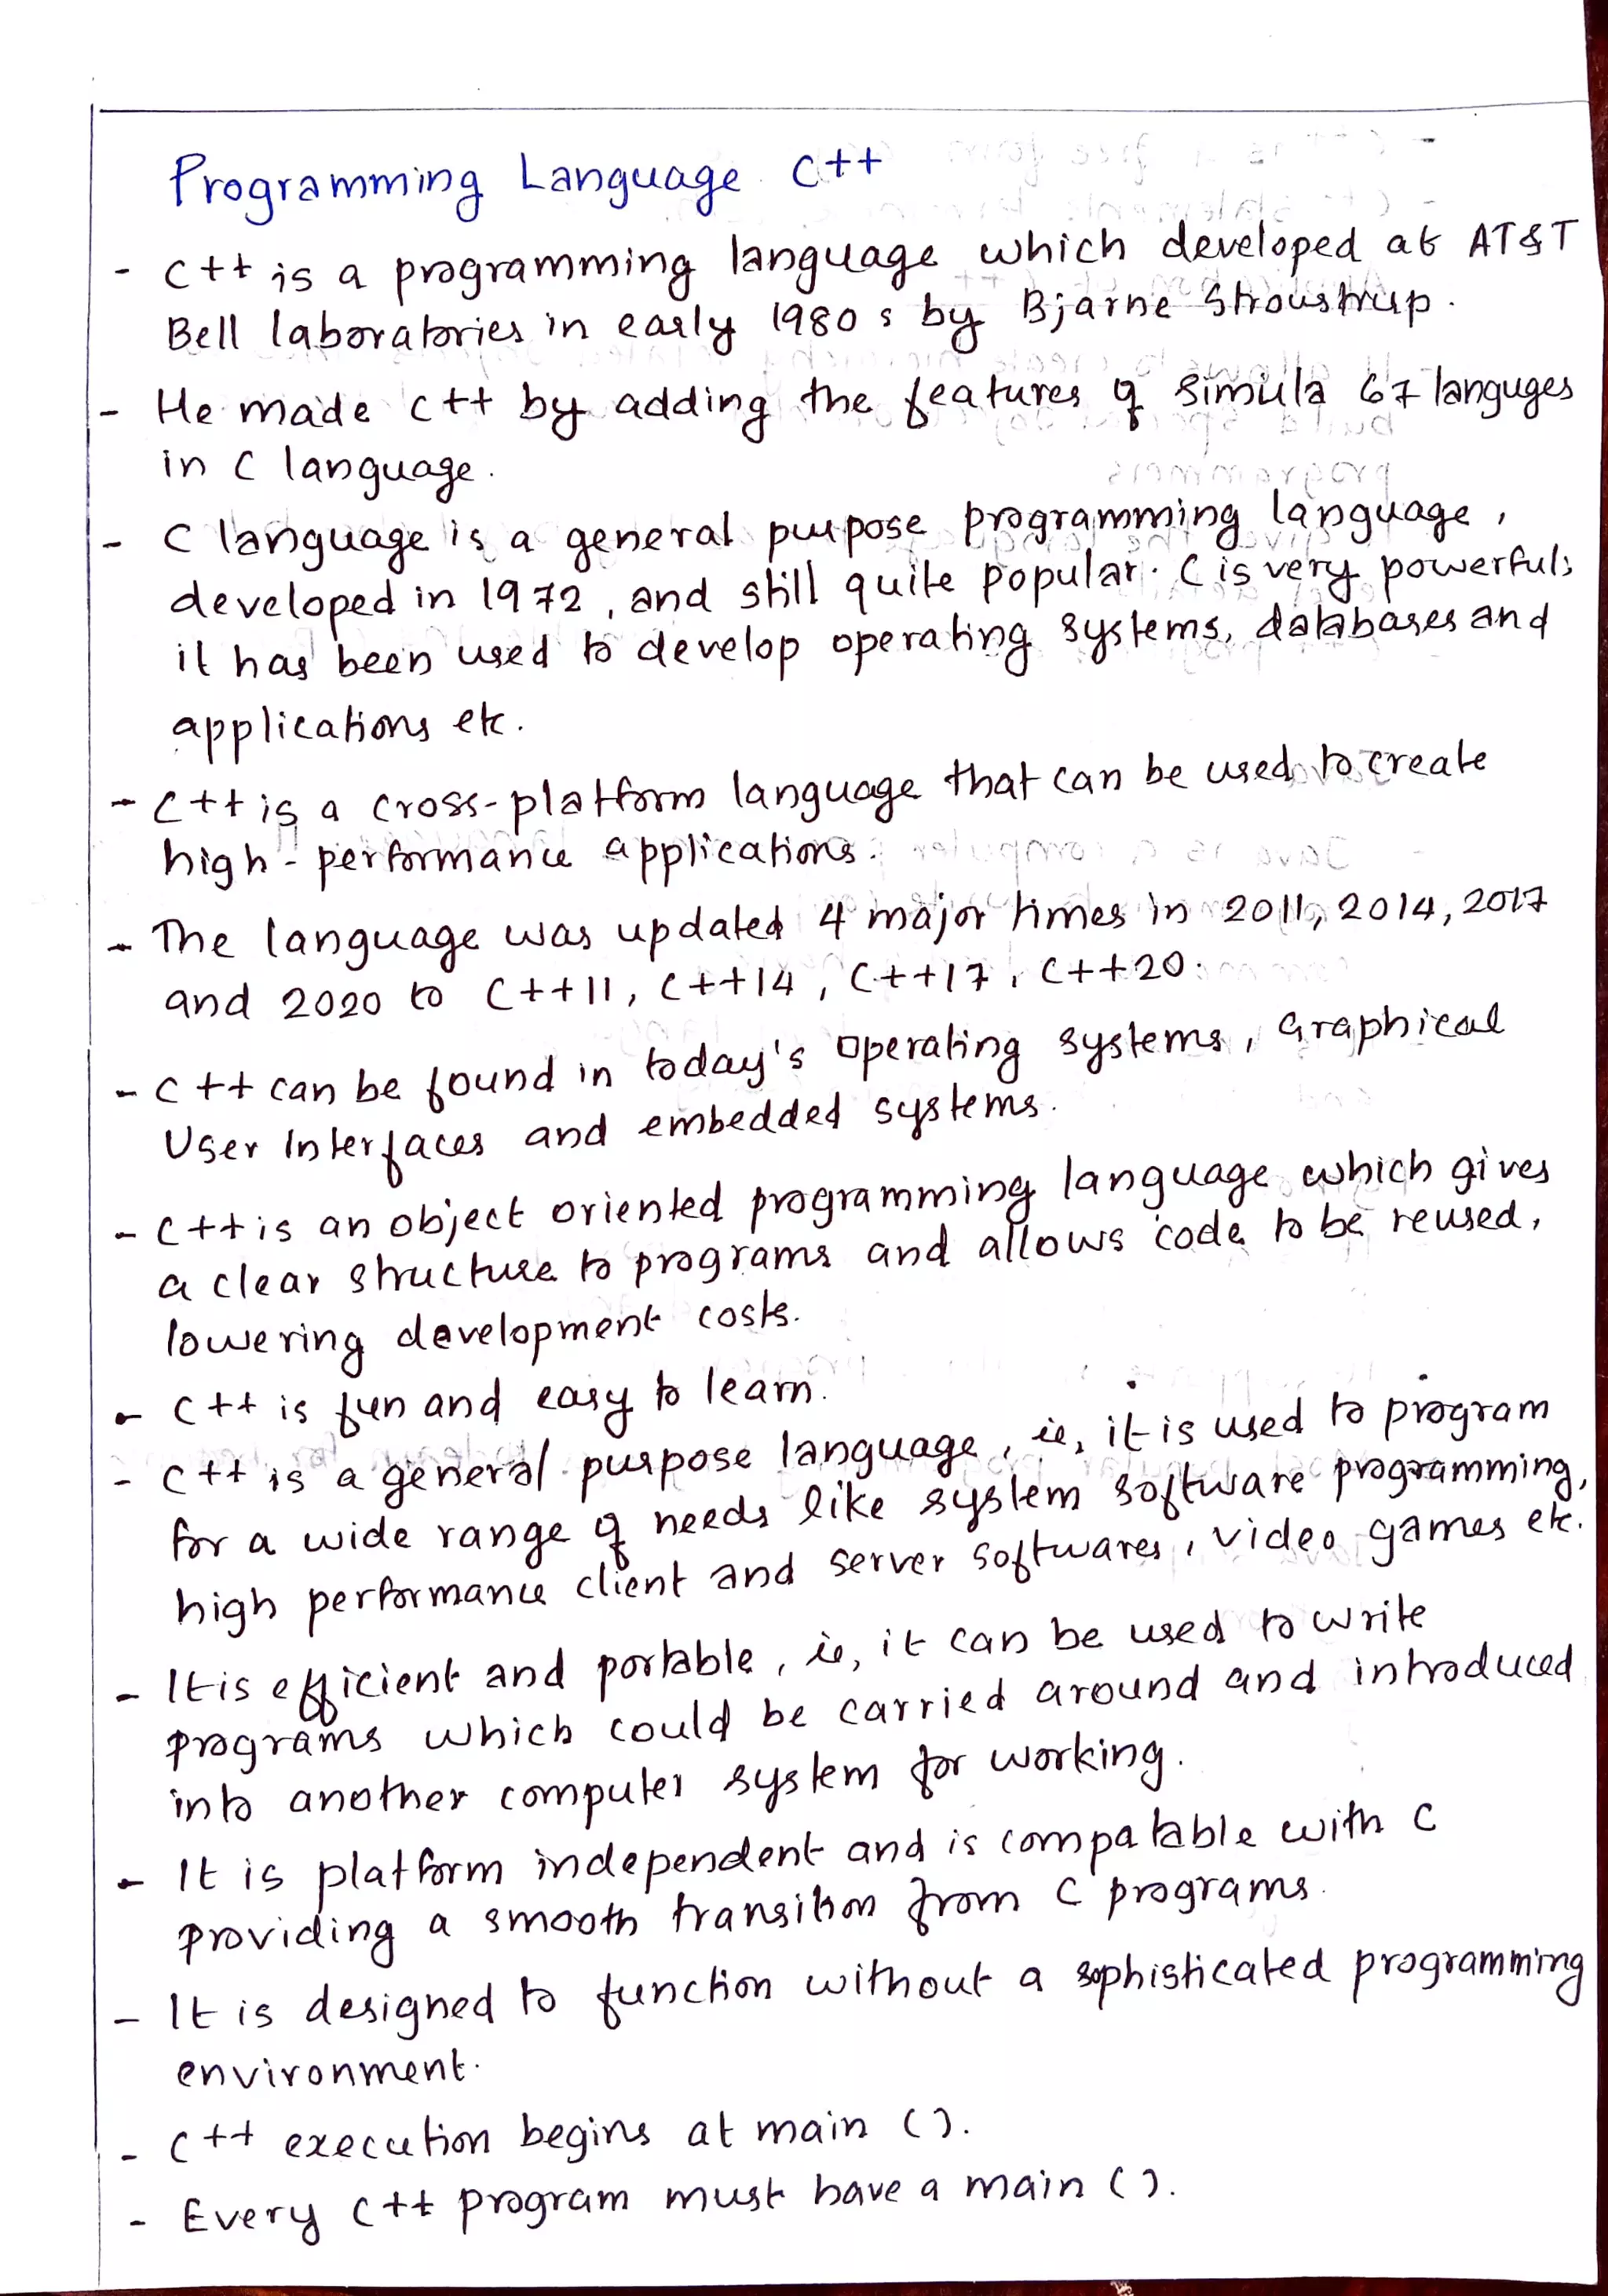 Programming Language C++
- C++ is a programming language which developed at AT&T
Bell laboratories in early 1980s by Bjarne Stroustrup.
- He made C++ by adding the features of Simula 67 languges
in C language.
- C language is a general purpose programming language,
developed in 1972, and still quite popular. C is very powerful;
it has been used to develop operating systems, databases and
applications etc.
- C++ is a cross-platform language that can be used to create
high-performance applications.
- The language was updated 4 major times in 2011, 2014, 2017
and 2020 to C++11, C++14, C++17, C++20.
- C++ can be found in today's operating systems, Graphical
User Interfaces and embedded systems.
- C++ is an object oriented programming language which gives
a clear structure to programs and allows code to be reused,
lowering development costs.
- C++ is fun and easy to learn.
- C++ is a general purpose language, ie, it is used to program
for a wide range of needs like system software programming,
high performance client and server softwares, video games etc.
- It is efficient and portable, ie, it can be used to write
programs which could be carried around and introduced
into another computer system for working.
- It is platform independent and is compatable with C
providing a smooth transition from C programs.
- It is designed to function without a sophisticated programming
environment.
- C++ execution begins at main ().
- Every C++ program must have a main ().